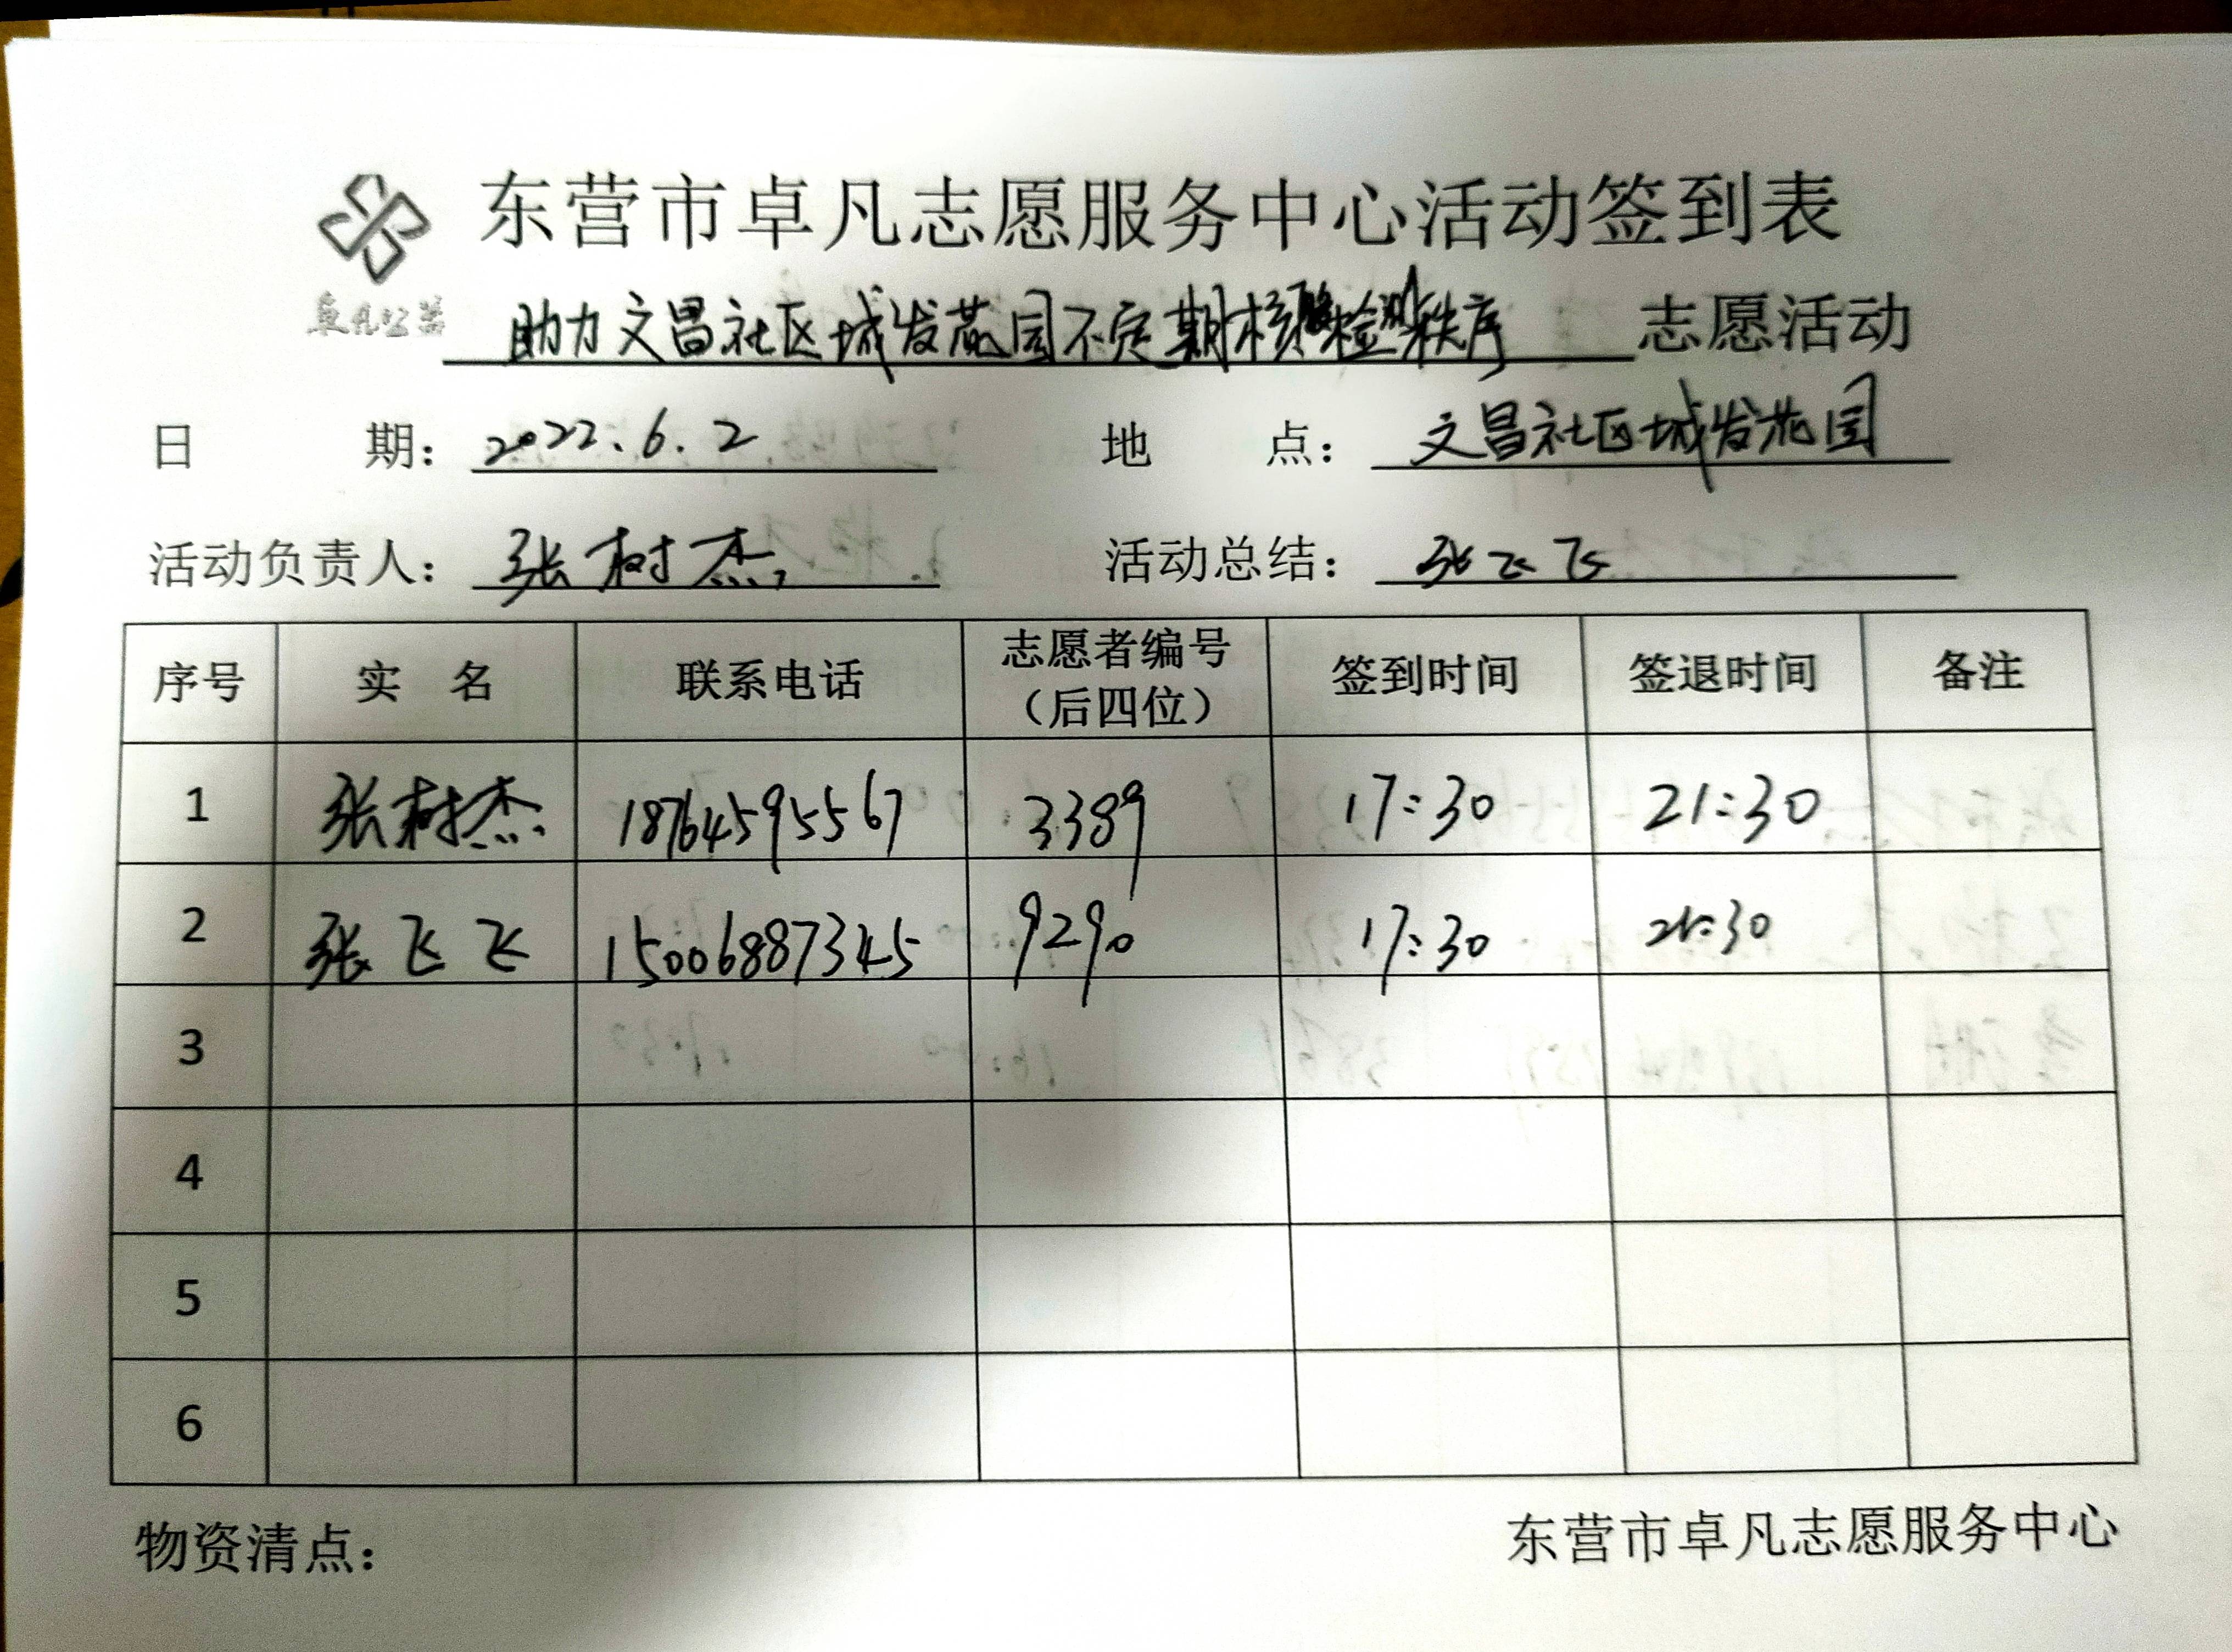 东营市卓凡志愿服务中心活动签到表
卓凡公益
助力文昌社区城发花园不定期核酸检测秩序 志愿活动
日 期： 2022.6.2 地 点： 文昌社区城发花园
活动负责人： 张树杰 活动总结： 张飞飞
序号 实 名 联系电话 志愿者编号（后四位） 签到时间 签退时间 备注
1 张树杰 18764595567 3389 17:30 21:30
2 张飞飞 15006887345 9290 17:30 21:30
3
4
5
6
物资清点： 东营市卓凡志愿服务中心